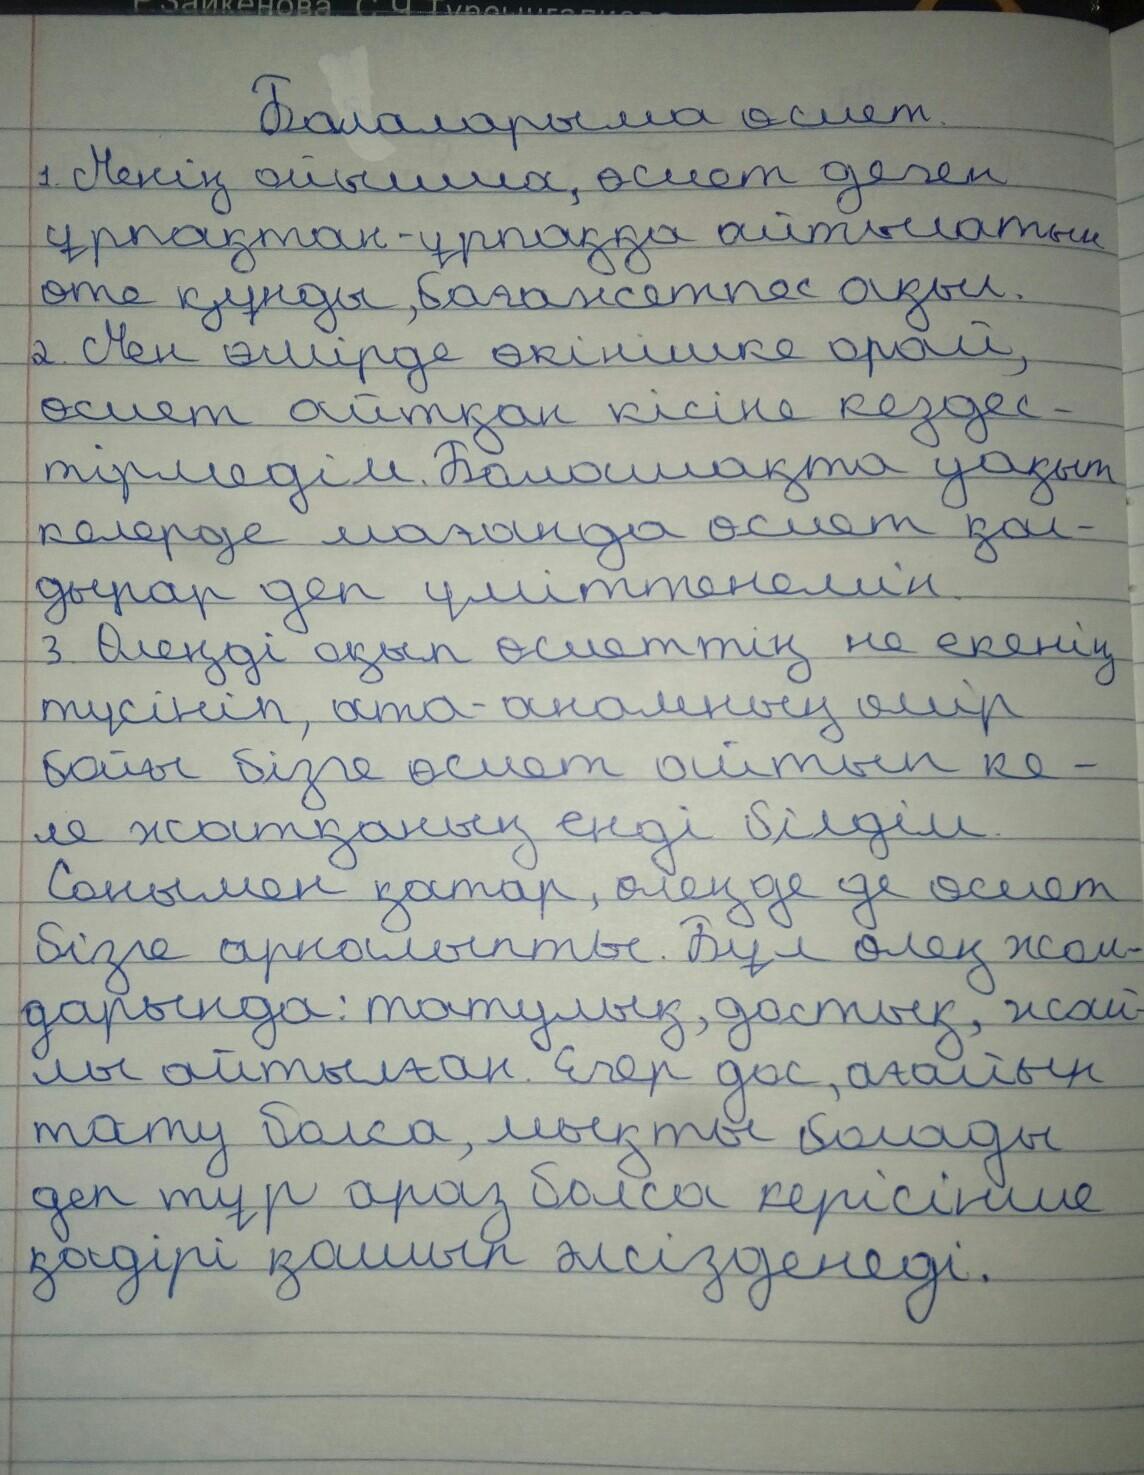 Р.Зайкенова, С.Ч.
Балаларыма өсиет.
1. Менің ойымша, өсиет деген
ұрпақтан-ұрпаққа айтылатын
өте құнды, бағажетпес ақыл.
2. Мен өмірде өкінішке орай,
өсиет айтқан кісіне кездес-
тірмедім. Болошақта уақыт
келерде мағанда өсиет қал-
дырар деп үміттенемін.
3. Өлеңді оқып өсиеттің не екенің
түсініп, ата-анамның өмір
бойы бізге өсиет айтып ке-
ле жатқаның енді білдім.
Сонымен қатар, өлеңде де өсиет
бізге арналыпты. Бұл өлең жол-
дарында: татулық, достық, жай-
лы айтылған. Егер дос, ағайын
тату болса, мықты болады
деп тұр араз болса керісінше
қадірі қашып әлсізденеді.